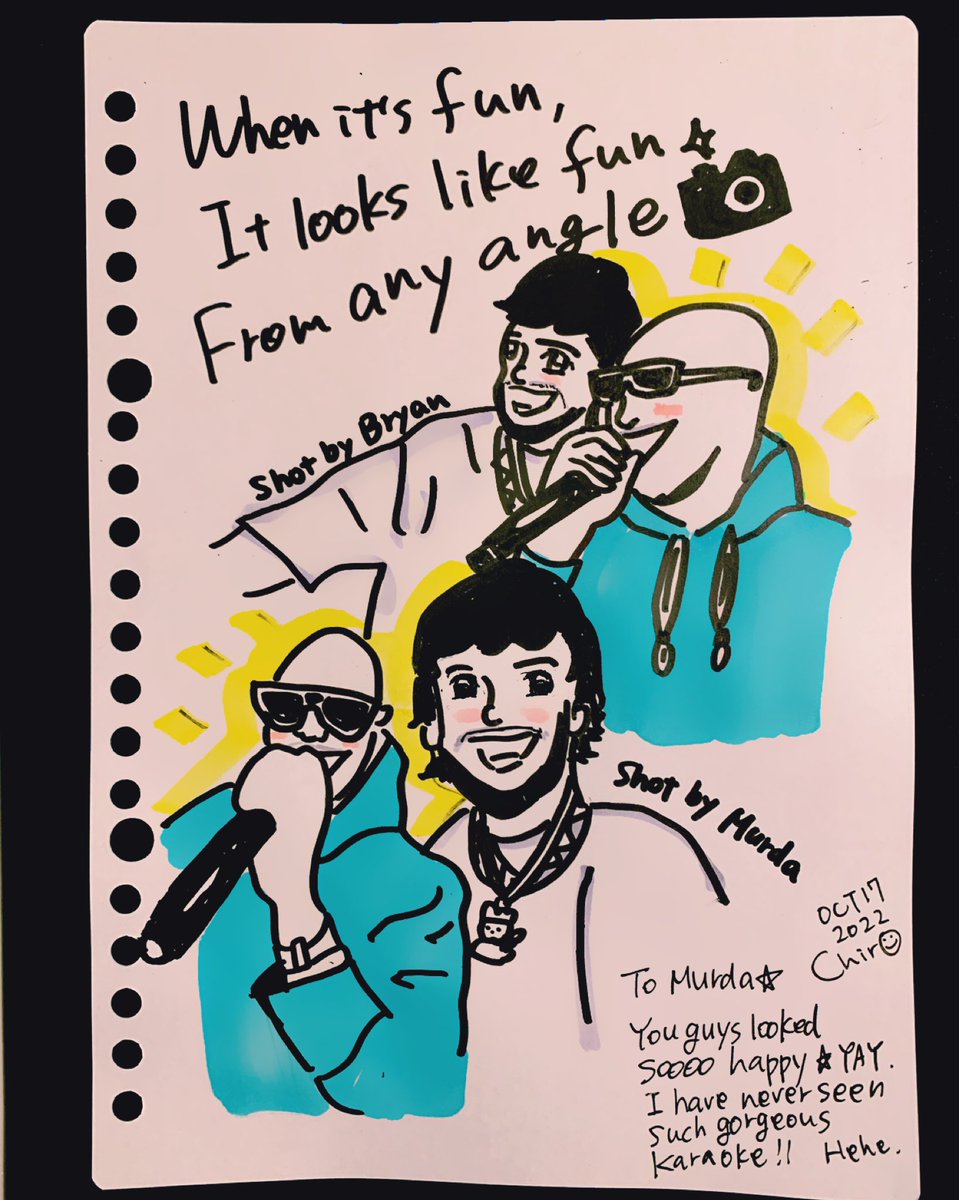 When it's fun,
It looks like fun
From any angle
Shot by Bryan
Shot by Murda
OCT 17
2022
Chiro
To Murda
You guys looked
soooo happy YAY.
I have never seen
such gorgeous
karaoke!! Hehe.